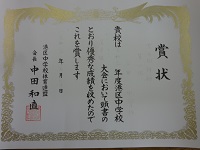 賞状
貴校は
年度港区中学校
大会において頭書の
とおり優秀な成績を収めたので
これを賞します
年 月 日
港区中学校体育連盟
会長 中田和直